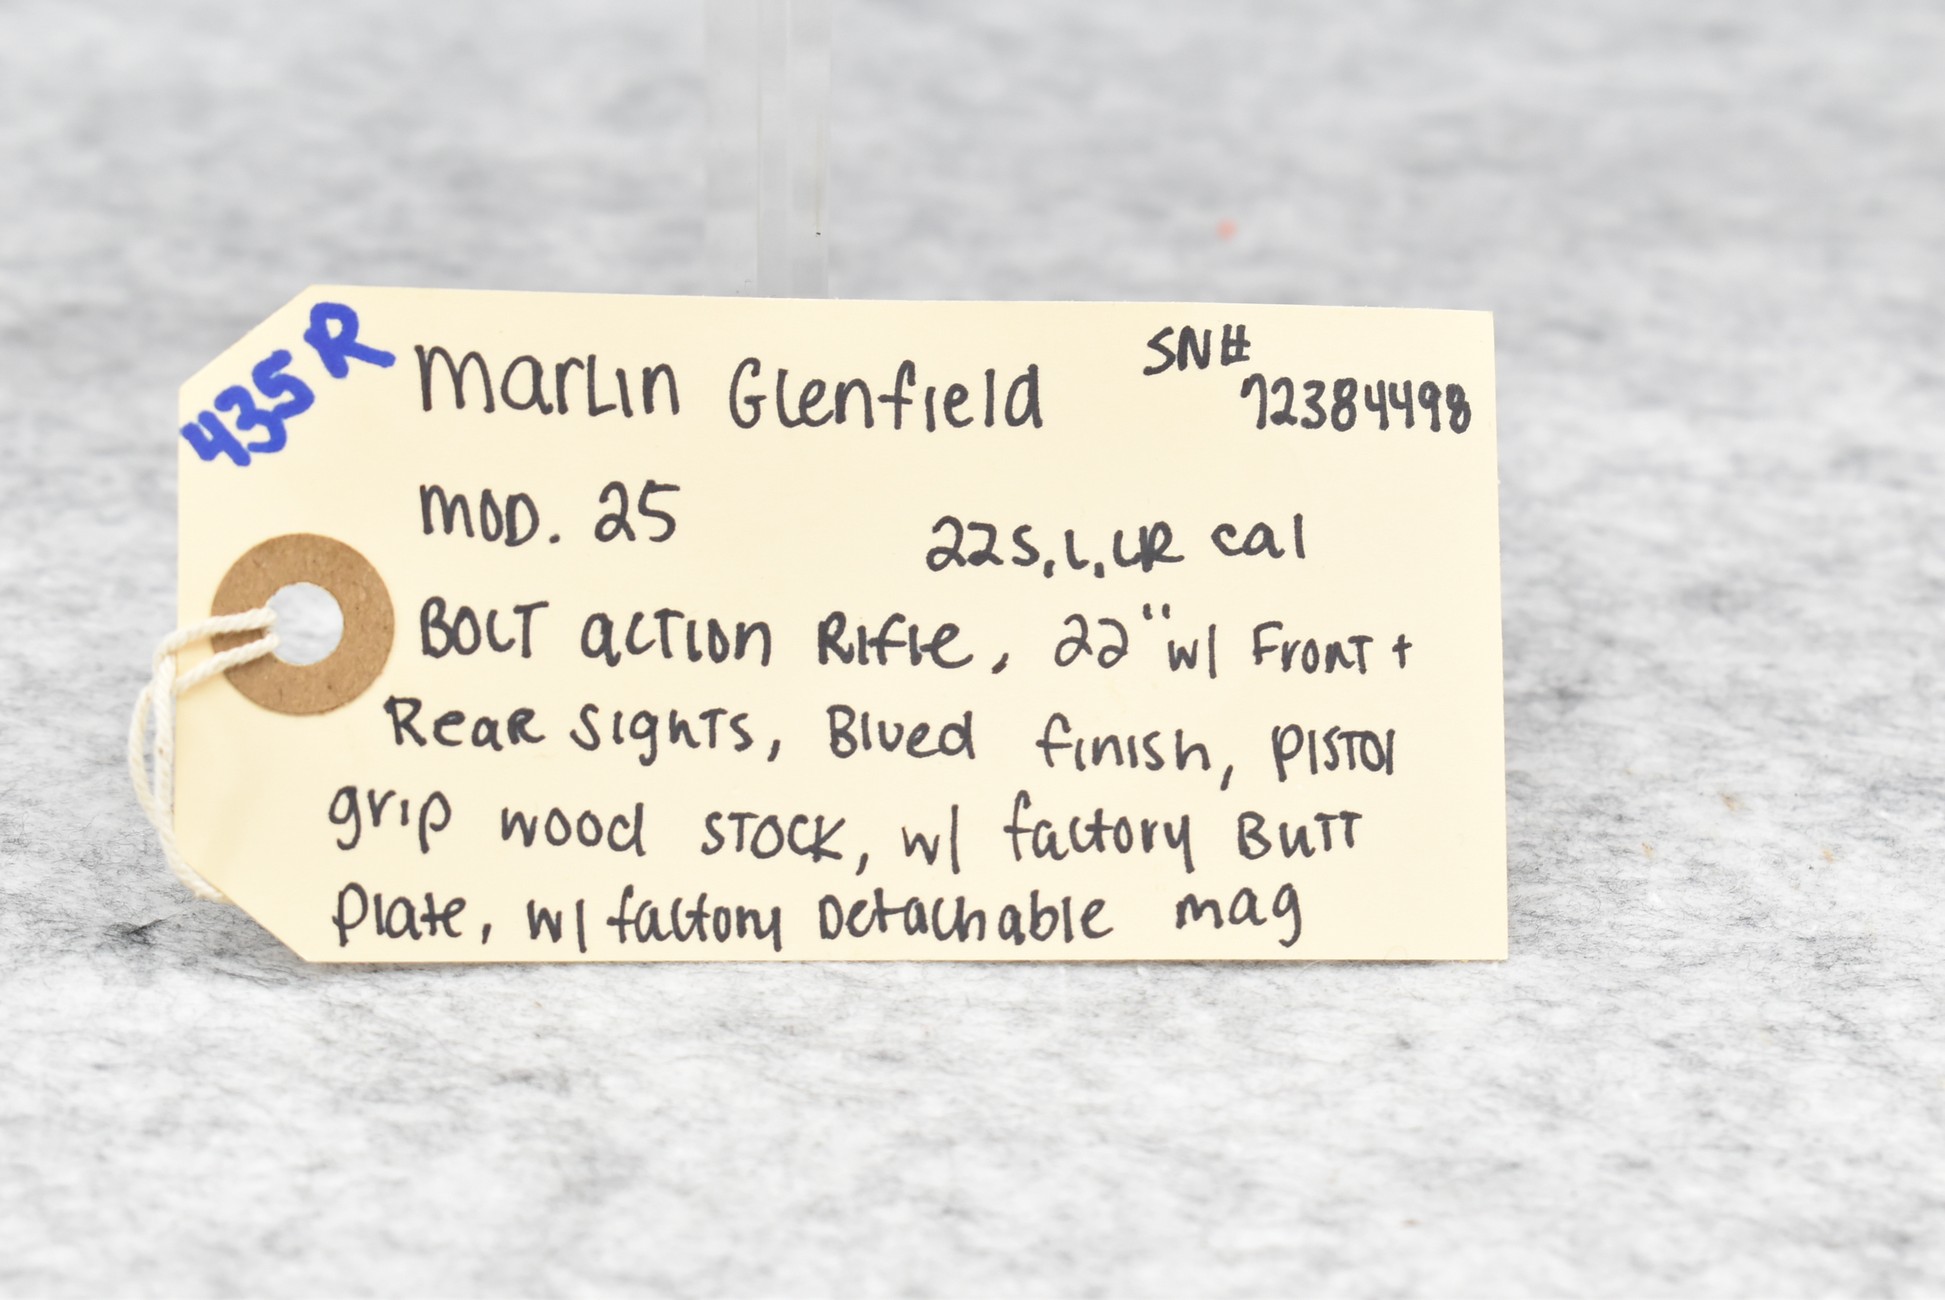 435R
Marlin Glenfield
SN#
72384498
Mod. 25
22S,L,LR cal
Bolt action Rifle, 22" w/ Front +
Rear Sights, Blued finish, Pistol
grip wood stock, w/ factory Butt
Plate, w/ factory Detachable mag